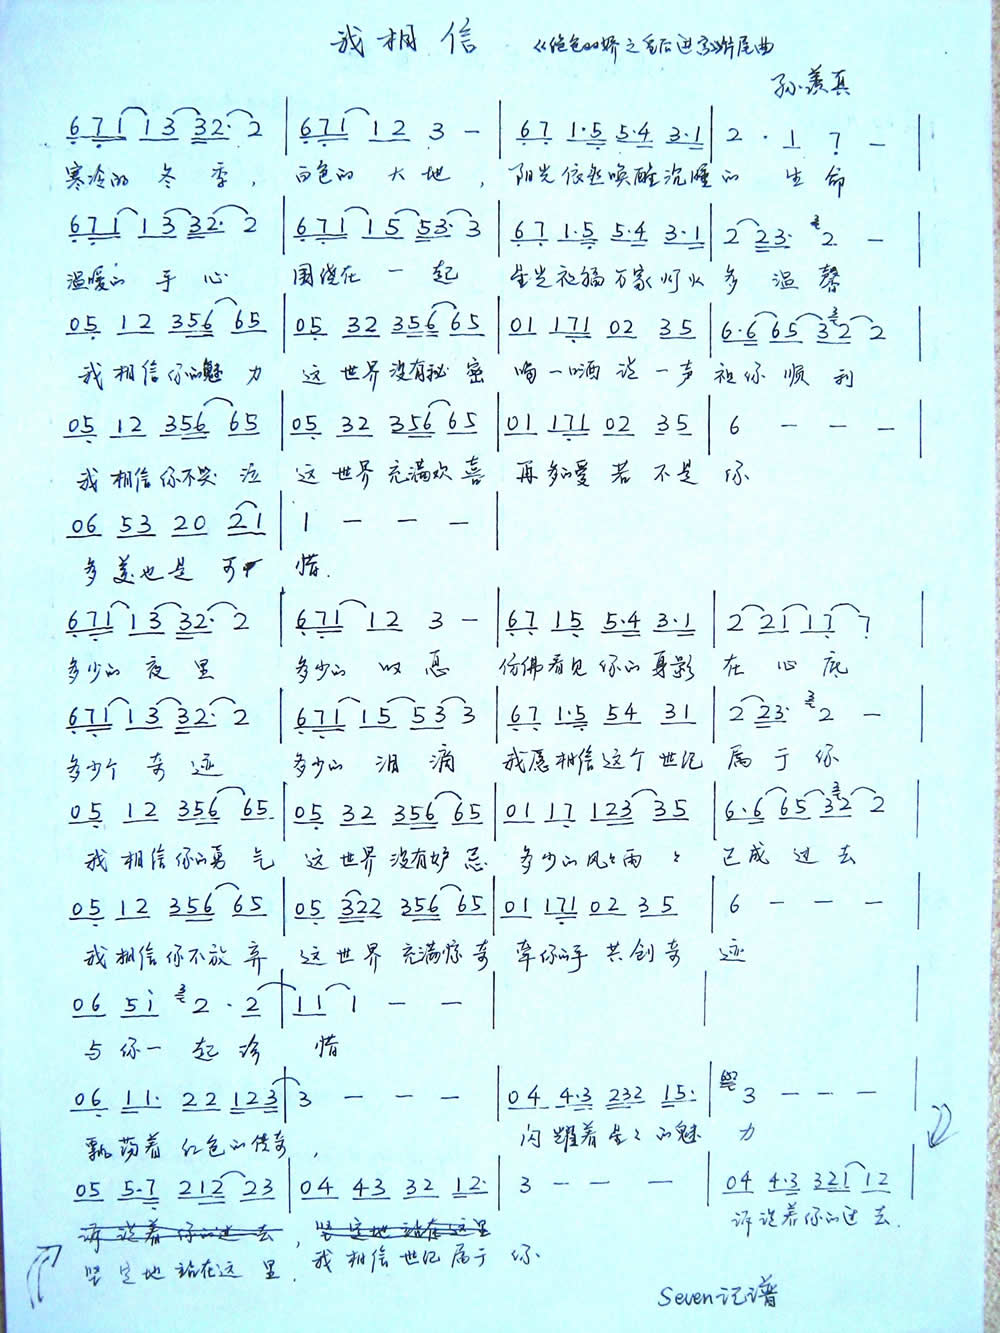 我相信 《绝色之娇之毛后进京》片尾曲
孙羡真
6 7 1 1 3 3 2· 2 | 6 7 1 1 2 3 - | 6 7 1·5 5·4 3·1 | 2 · 1 7 - |
寒冷的 冬 季， 白色的 大 地， 阳光依然唤醒沉睡的 生 命
6 7 1 1 3 3 2· 2 | 6 7 1 1 5 5 3· 3 | 6 7 1·5 5·4 3·1 | 2 2 3· 2 - |
温暖的 手 心 围绕在 一 起 生 祝福万家灯火 多 温 馨
0 5 1 2 3 5 6 6 5 | 0 5 3 2 3 5 6 6 5 | 0 1 1 7 1 0 2 3 5 | 6·6 6 5 3 2 2
我 相信你的魅 力 这 世界没有秘 密 喝一口酒 说一声 祝你 顺 利
0 5 1 2 3 5 6 6 5 | 0 5 3 2 3 5 6 6 5 | 0 1 1 7 1 0 2 3 5 | 6 - - -
我 相信你不哭 泣 这 世界 充满欢 喜 再多的爱 若 不是 你
0 6 5 3 2 0 2 1 | 1 - - - |
多 美也是 可 惜.
6 7 1 1 3 3 2· 2 | 6 7 1 1 2 3 - | 6 7 1 5 5·4 3·1 | 2 2 1 1 7 7
多少的 夜 里 多少的 叹 息 仿佛看见 你的身影 在 心 底
6 7 1 1 3 3 2· 2 | 6 7 1 1 5 5 3 3 | 6 7 1·5 5 4 3 1 | 2 2 3· 2 -
多少个 奇 迹 多少的 泪 滴 我愿相信这个 世纪 属 于 你
0 5 1 2 3 5 6 6 5 | 0 5 3 2 3 5 6 6 5 | 0 1 1 7 1 2 3 3 5 | 6·6 6 5 3 2 2
我 相信你的勇 气 这 世界 没有妒 忌 多少的风风雨 雨 已成 过 去
0 5 1 2 3 5 6 6 5 | 0 5 3 2 2 3 5 6 6 5 | 0 1 1 7 1 0 2 3 5 | 6 - - -
我 相信你不放 弃 这 世界 充满惊 奇 牵你的手 共 创 奇 迹
0 6 5 i 2 · 2 | 1 1 1 - - |
与 你一 起 珍 惜
0 6 1 1· 2 2 1 2 3 | 3 - - - | 0 4 4·3 2 3 2 1 5· | 3 - - -
飘荡着 红色的传奇， 闪耀着 生生的魅 力
0 5 5·7 2 1 2 2 3 | 0 4 4 3 3 2 1 2· | 3 - - - | 0 4 4·3 3 2 1 1 2
诉说着 你的过 去， 坚定地 站在这里 诉说着你的过 去.
坚 定地 站在这 里. 我 相信 世纪属于 你.
Seven记谱